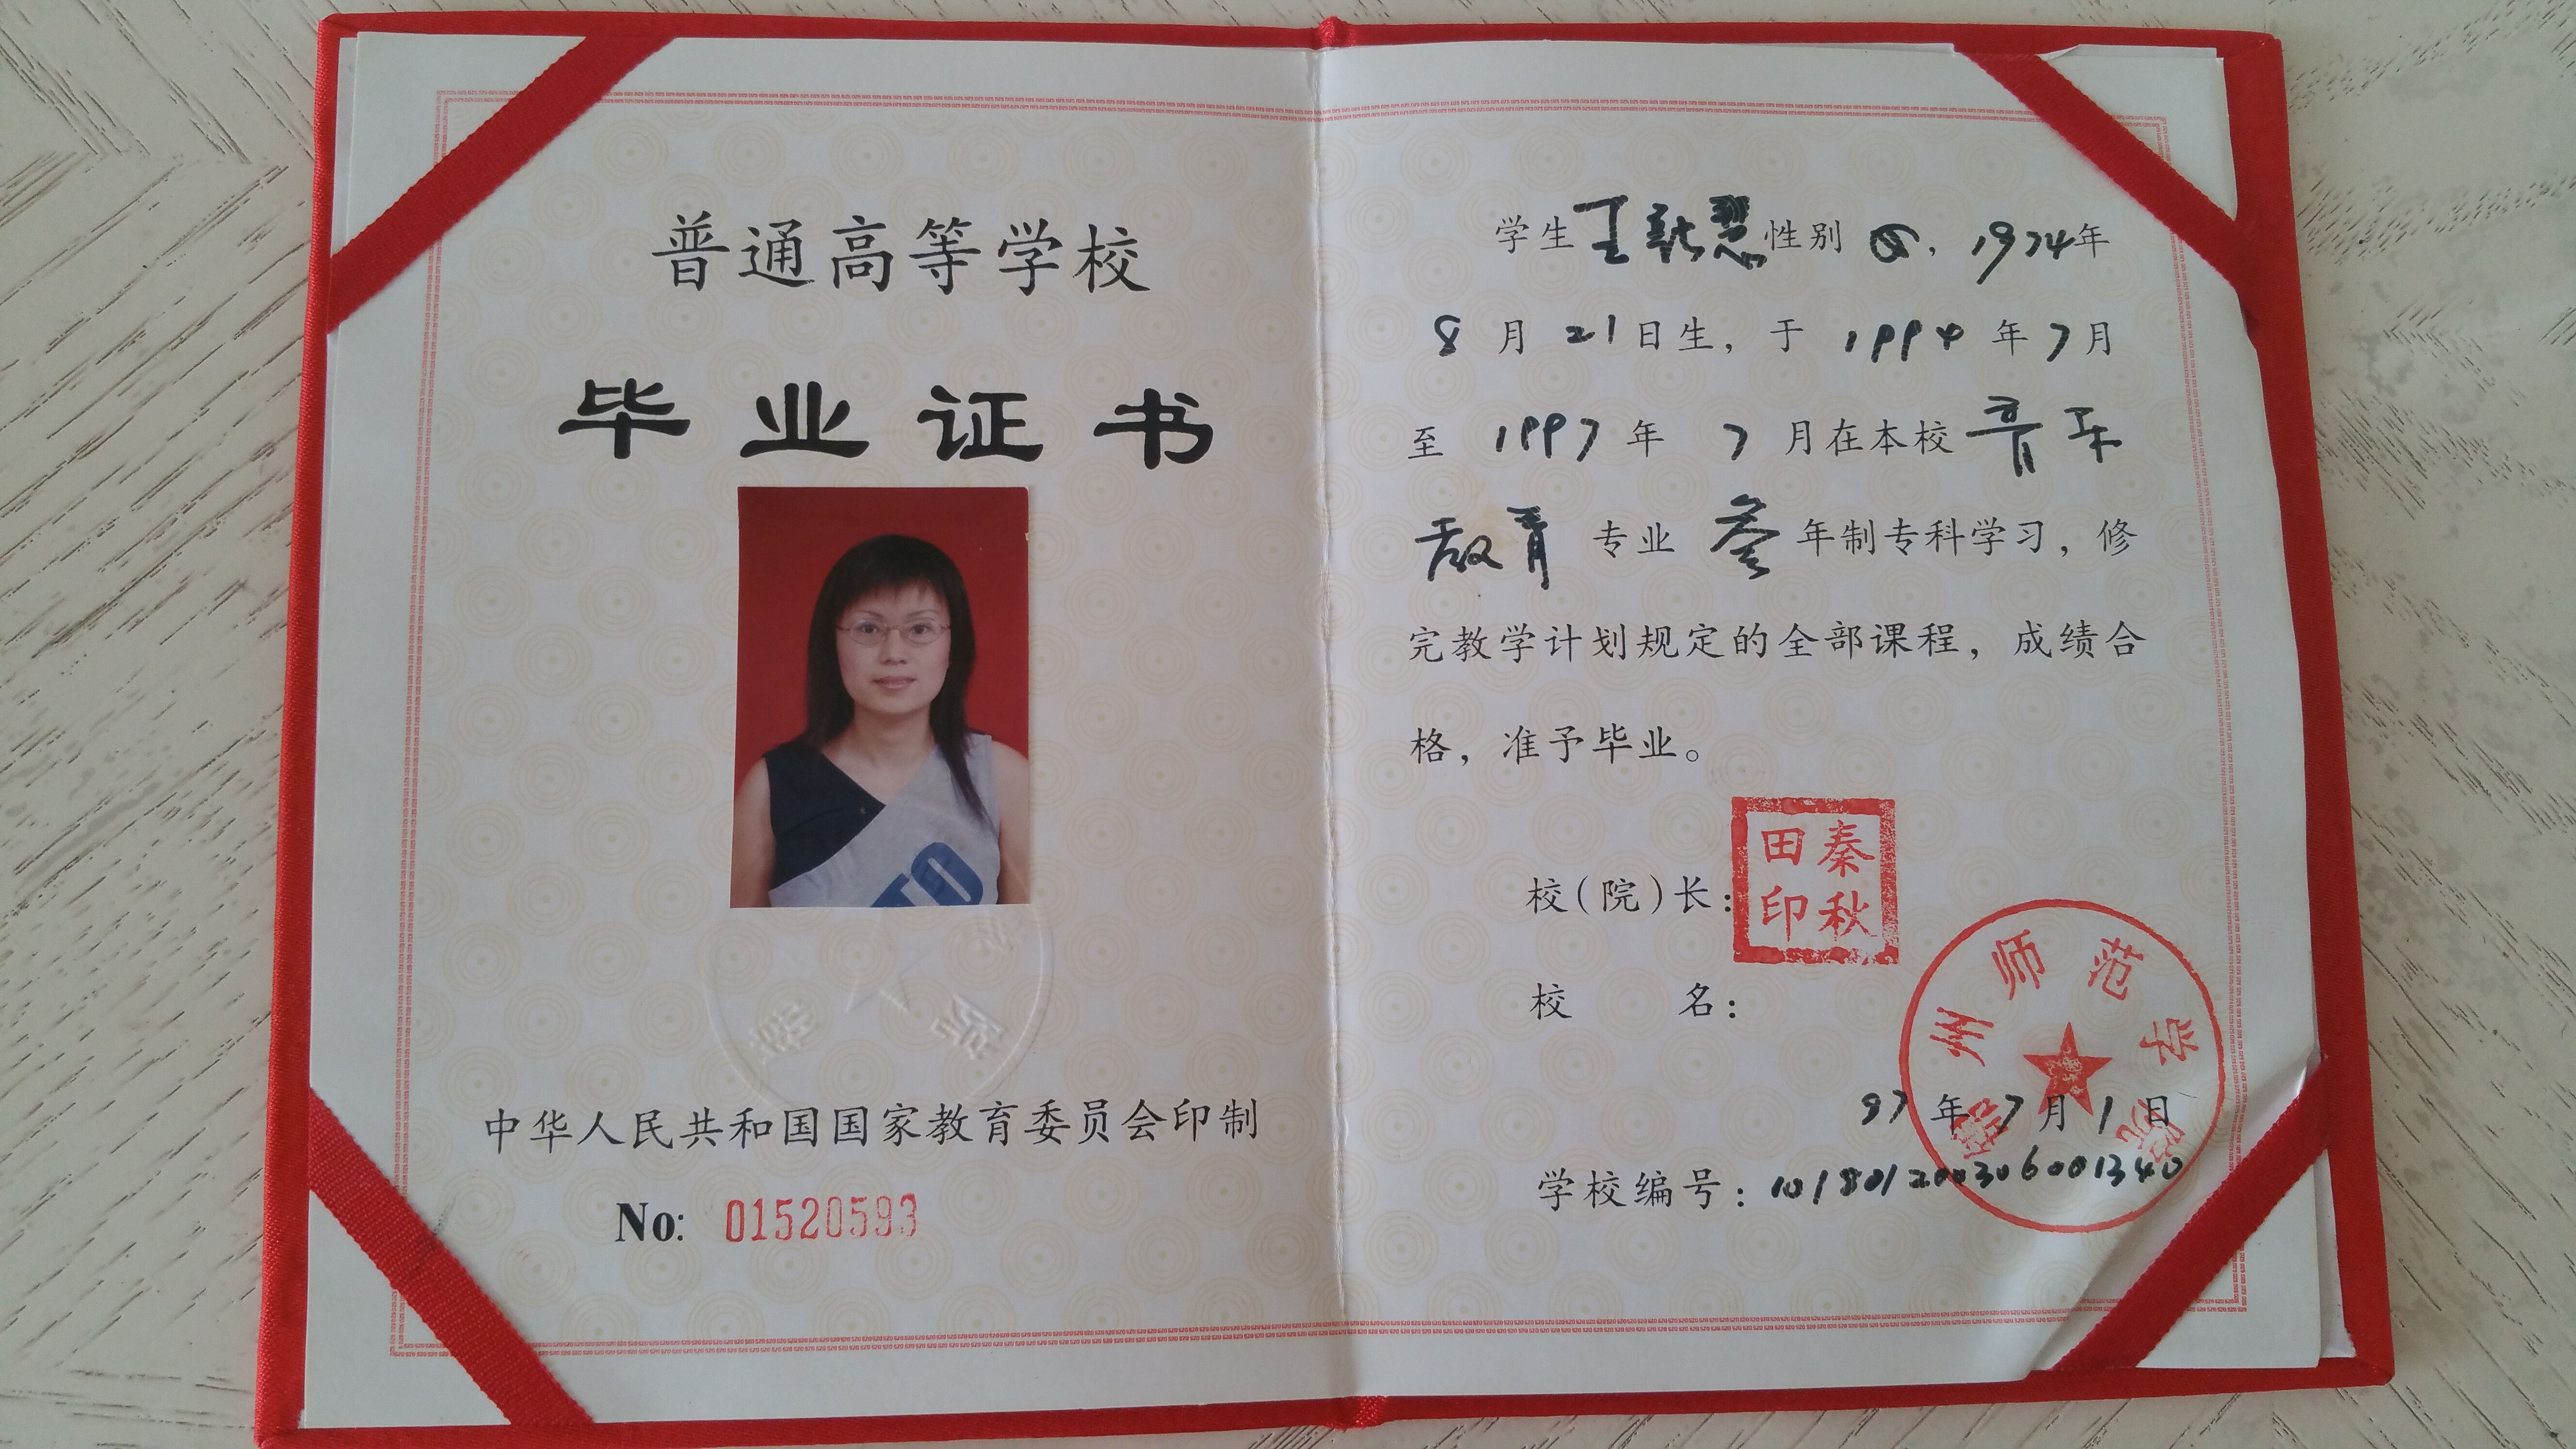 普通高等学校
毕业证书
TO
中华人民共和国国家教育委员会印制
No: 01520593
学生王新慧性别 女, 1974年
8月21日生, 于1994年7月
至1997年7月在本校音乐
教育专业叁年制专科学习, 修
完教学计划规定的全部课程, 成绩合
格, 准予毕业。
校(院)长: 秦秋田印
校名:
州师范学院
97年7月1日
学校编号: 101801200306001340